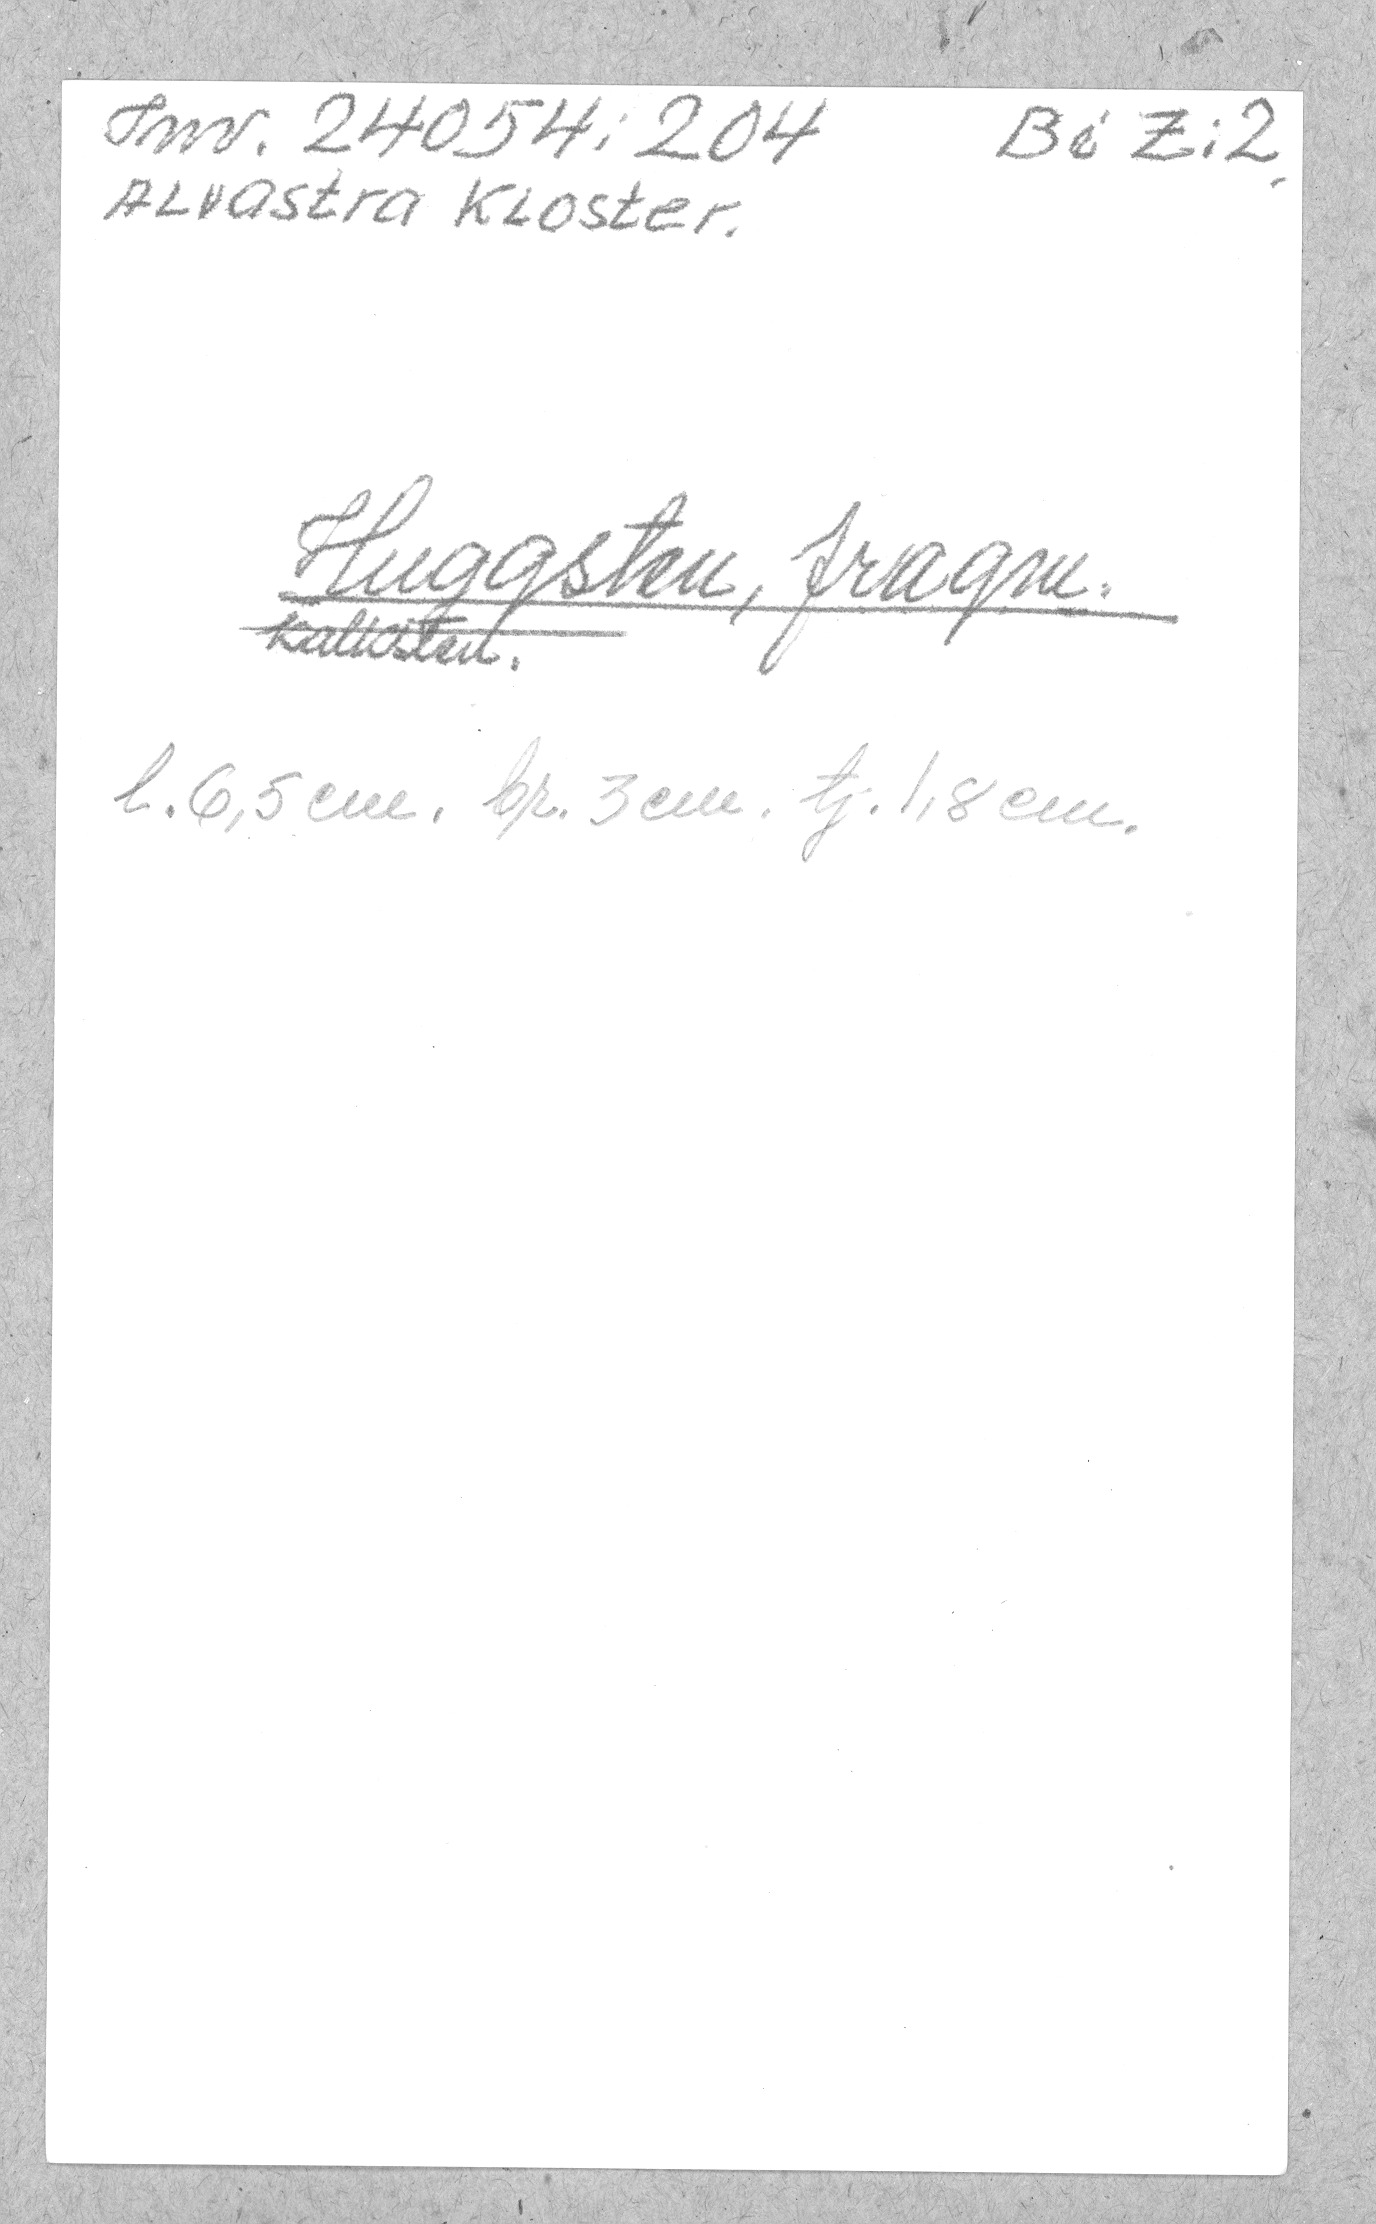 Inv. 24054:204 Bå Z:2.
Alvastra Kloster.
Huggsten, fragm.
Kalksten.
l. 6,5 cm. br. 3 cm. tj. 1,8 cm.